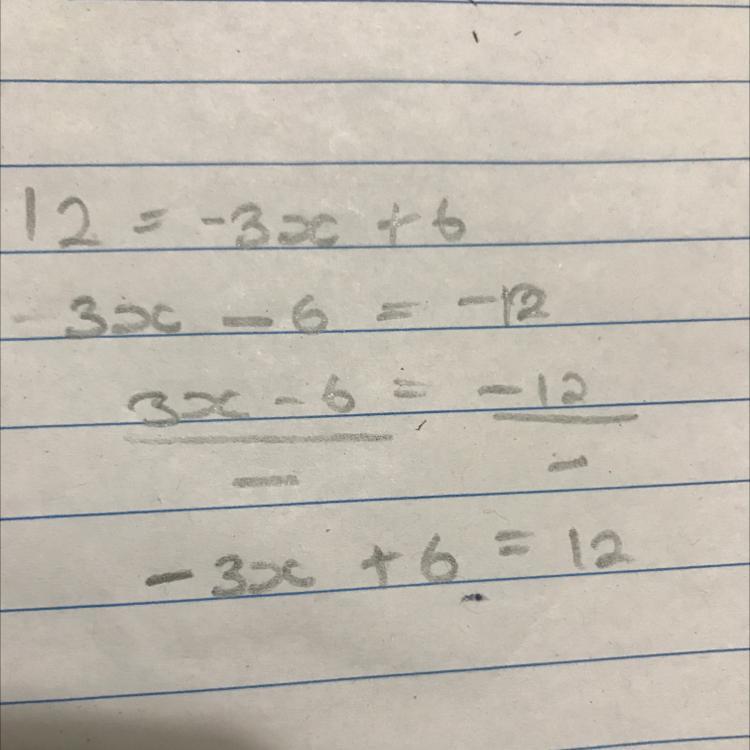 12 = -3x + 6
3x - 6 = -12
3x - 6 = -12
- -
-3x + 6 = 12